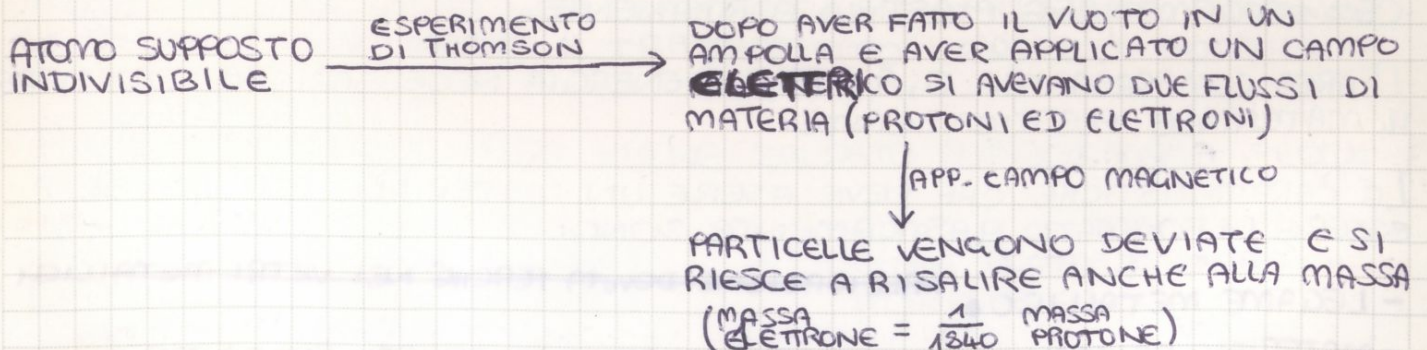 ATOMO SUPPOSTO
INDIVISIBILE
ESPERIMENTO
DI THOMSON
DOPO AVER FATTO IL VUOTO IN UN
AMPOLLA E AVER APPLICATO UN CAMPO
ELETTRICO SI AVEVANO DUE FLUSSI DI
MATERIA (PROTONI ED ELETTRONI)
APP. CAMPO MAGNETICO
PARTICELLE VENGONO DEVIATE E SI
RIESCE A RISALIRE ANCHE ALLA MASSA
(MASSA ELETTRONE = 1/1840 MASSA PROTONE)